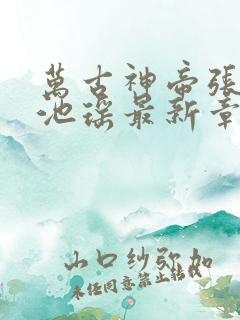 萬古神帝張
池瑤最新章
山口紗弥加
未经同意禁止转载